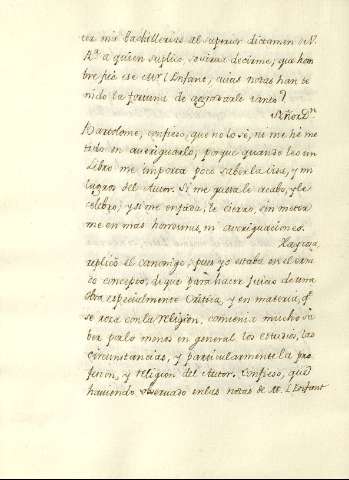 ter mis bachillerias al superior dictamen de V.
Rª. a quien suplico, se sirva decirme, que hom
bre fue ese Mr. l Enfant, cuias notas han te
nido la fortuna de agradarle tanto?
Señor Dn.
Bartolome, confieso, que no lo sé, ni me hé me
tido en averiguarlo; porque quando leo un
Libro me importa poco saber la vida, y mi
lagros del Autor. Si me gusta le acabo, y le
celebro; y si me enfada, le cierro, sin meter
me en mas honduras, ni averiguaciones.
replicó el canonigo; pues yo estaba en el erra
do concepto, de que para hacer juicio de una
obra especialmente Critica, y en materia, qe.
se roza con la religion, convenia mucho sa
ber por lo menos en general los estudios, las
circunstancias, y particularmente la pro
fesion, y religion del Autor. Confieso, que
haviendo observado en las notas de Mr. l Enfant